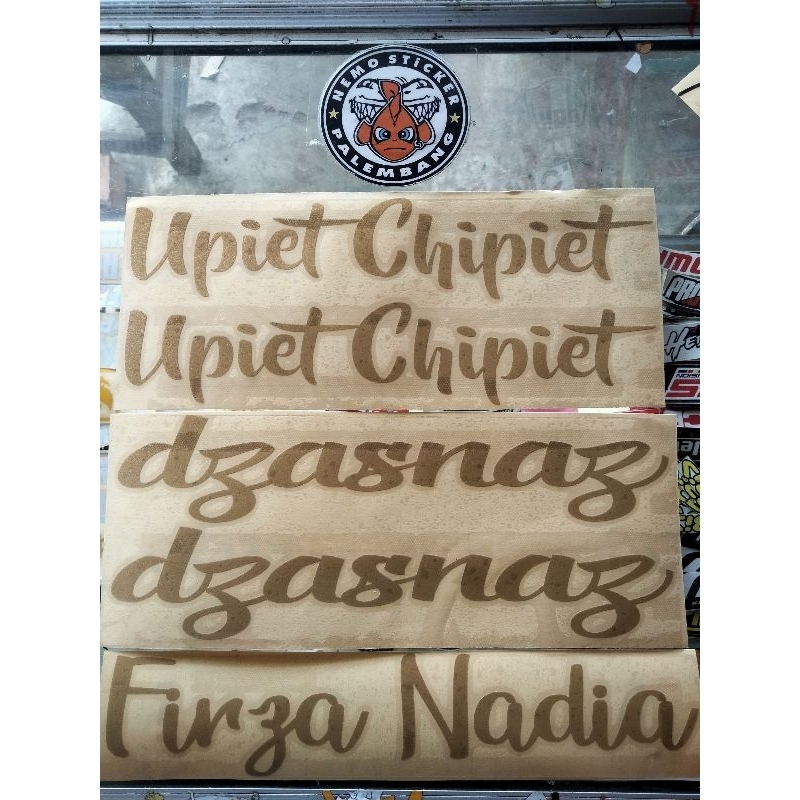 NEMO STiCKER
PALEMBANG
Upiet Chipiet
Upiet Chipiet
dzasnaz
dzasnaz
Firza Nadia